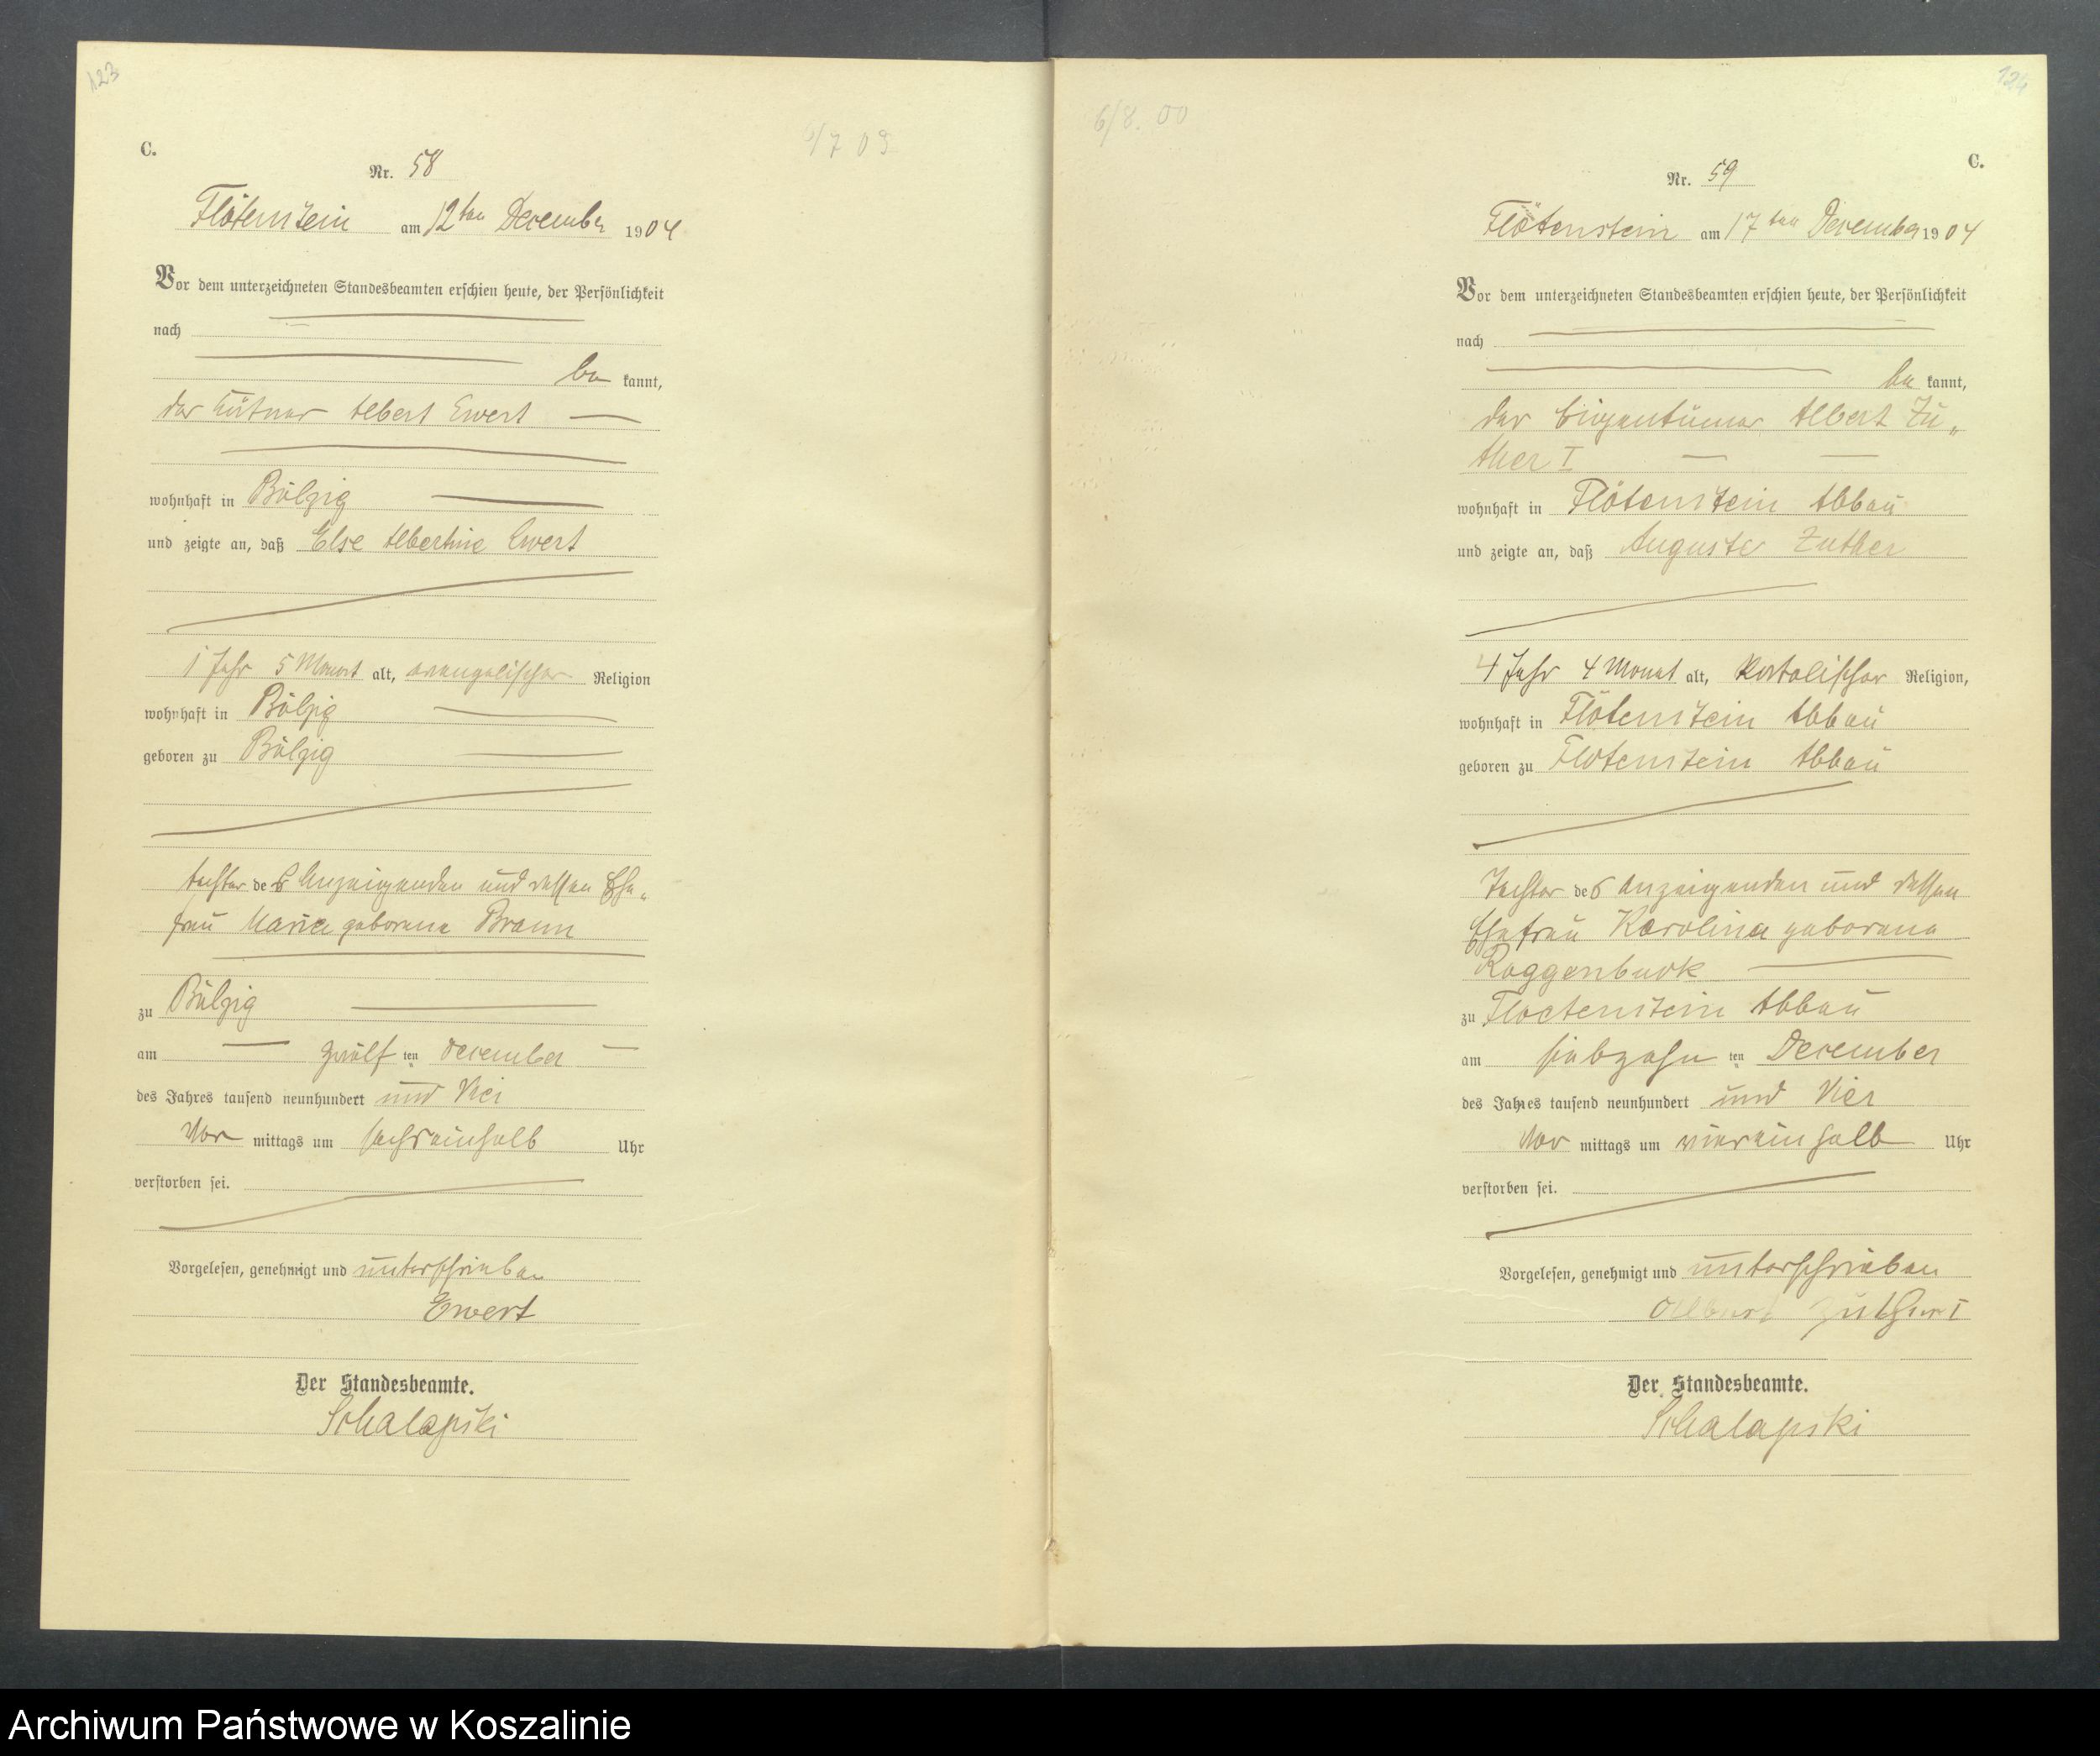 123
C.
6/7 03
Nr. 58
Flötenstein am 12ten December 1904
Vor dem unterzeichneten Standesbeamten erschien heute, der Persönlichkeit
nach
be kannt,
der Albert Ewert
wohnhaft in Bölzig
und zeigte an, daß Else Albertine Ewert
1 Jahr 5 Monat alt, evangelischer Religion
wohnhaft in Bölzig
geboren zu Bölzig
tochter des Anzeigenden und dessen Ehe„
frau Marie geborene Bramm
zu Bölzig
am zwölf ten December
des Jahres tausend neunhundert und Vier
Vor mittags um sechseinhalb Uhr
verstorben sei.
Vorgelesen, genehmigt und unterschrieben
Ewert
Der Standesbeamte.
Schalapski
6/8. 00
124
C.
Nr. 59
Flötenstein am 17ten December 1904
Vor dem unterzeichneten Standesbeamten erschien heute, der Persönlichkeit
nach
be kannt,
der Eigentümer Albert Zu„
ther I
wohnhaft in Flötenstein Abbau
und zeigte an, daß Auguste Zuther
4 Jahr 4 Monat alt, katolischer Religion,
wohnhaft in Flötenstein Abbau
geboren zu Flötenstein Abbau
Tochter des Anzeigenden und dessen
Ehefrau Karolina geborene
Roggenbuck
zu Floetenstein Abbau
am siebzehn ten December
des Jahres tausend neunhundert und Vier
Vor mittags um viereinhalb Uhr
verstorben sei.
Vorgelesen, genehmigt und unterschrieben
Albert Zuther I
Der Standesbeamte.
Schalapski
Archiwum Państwowe w Koszalinie